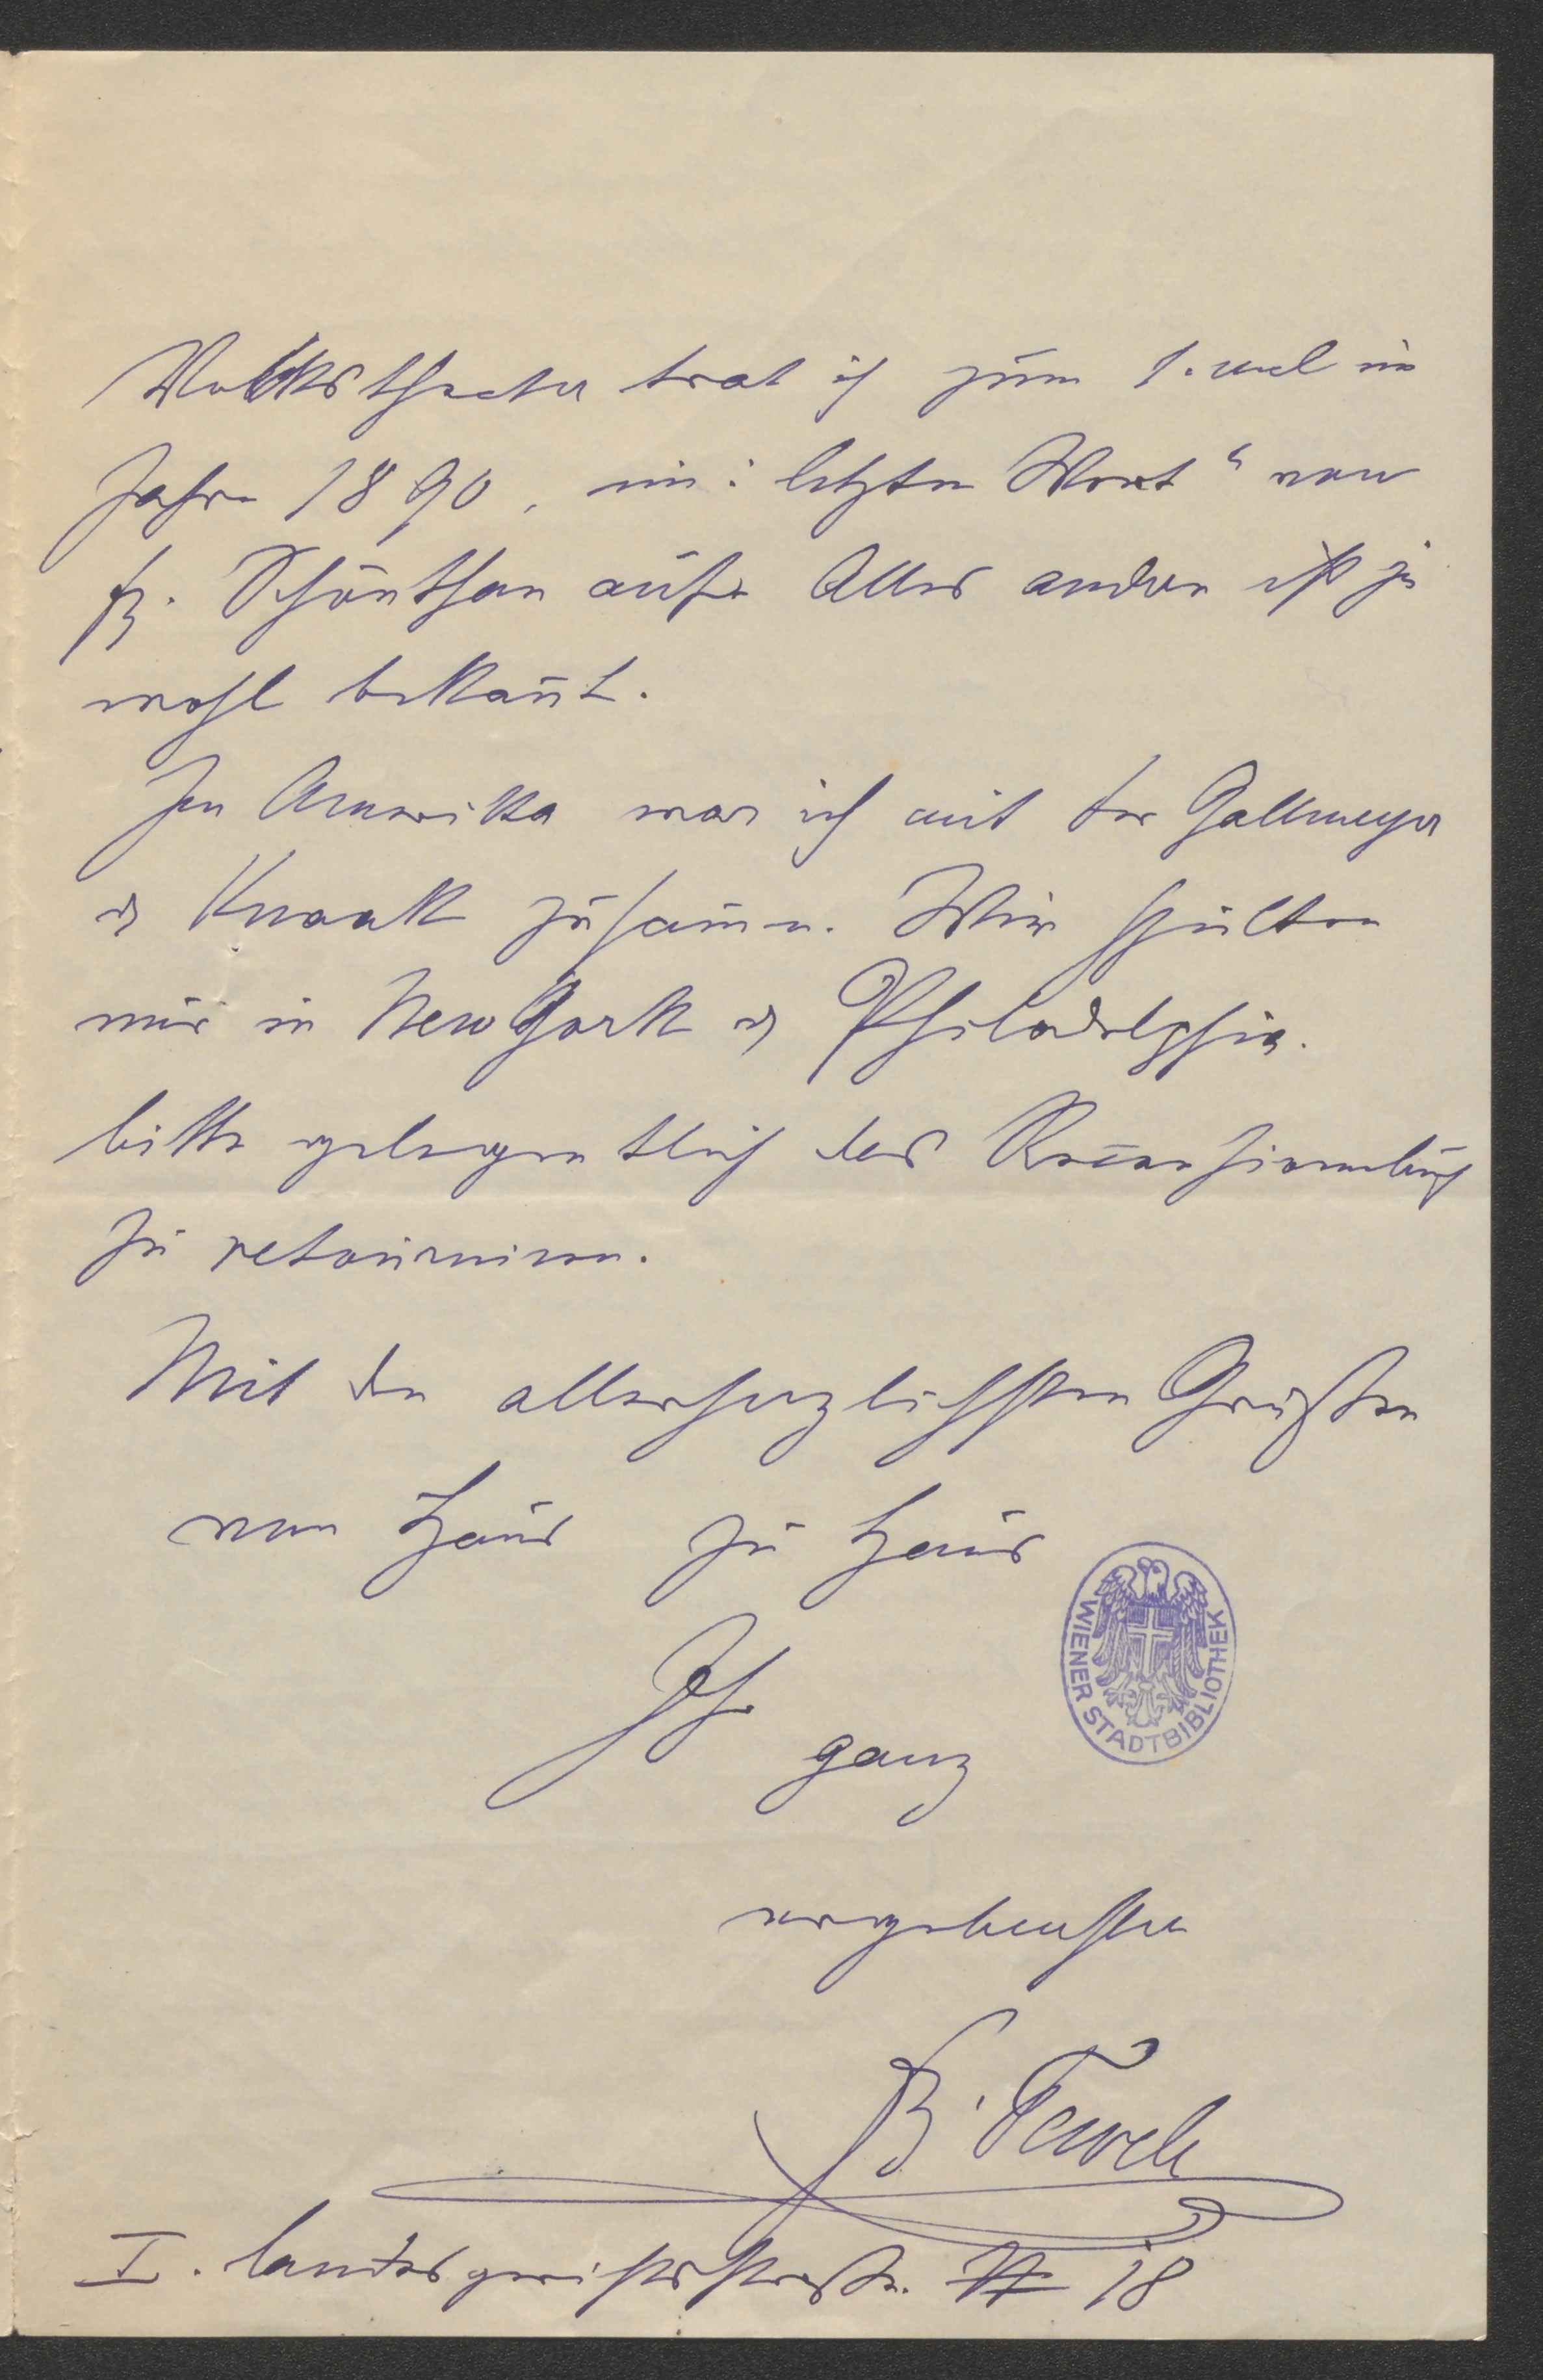 Volkstheater trat ich zum 1. mal im
Jahre 1890, im: letzten Wort" von
Fz. Schönthan auf. Alles andere ist ja
wohl bekañt.
In Amerika war ich mit der Gallmeyer
& Knaak zusam̄en. Wir spielten
nur in New York & Philadelphia.
bitte gelegentlich das Recensionsbuch
zu retournieren.
Mit den allerherzlichsten Grüßen
von Haus zu Haus
Ihr
ganz
ergebenster
Fz. Tewele
I. Landesgerichtsstraße. № 18
WIENER STADTBIBLIOTHEK